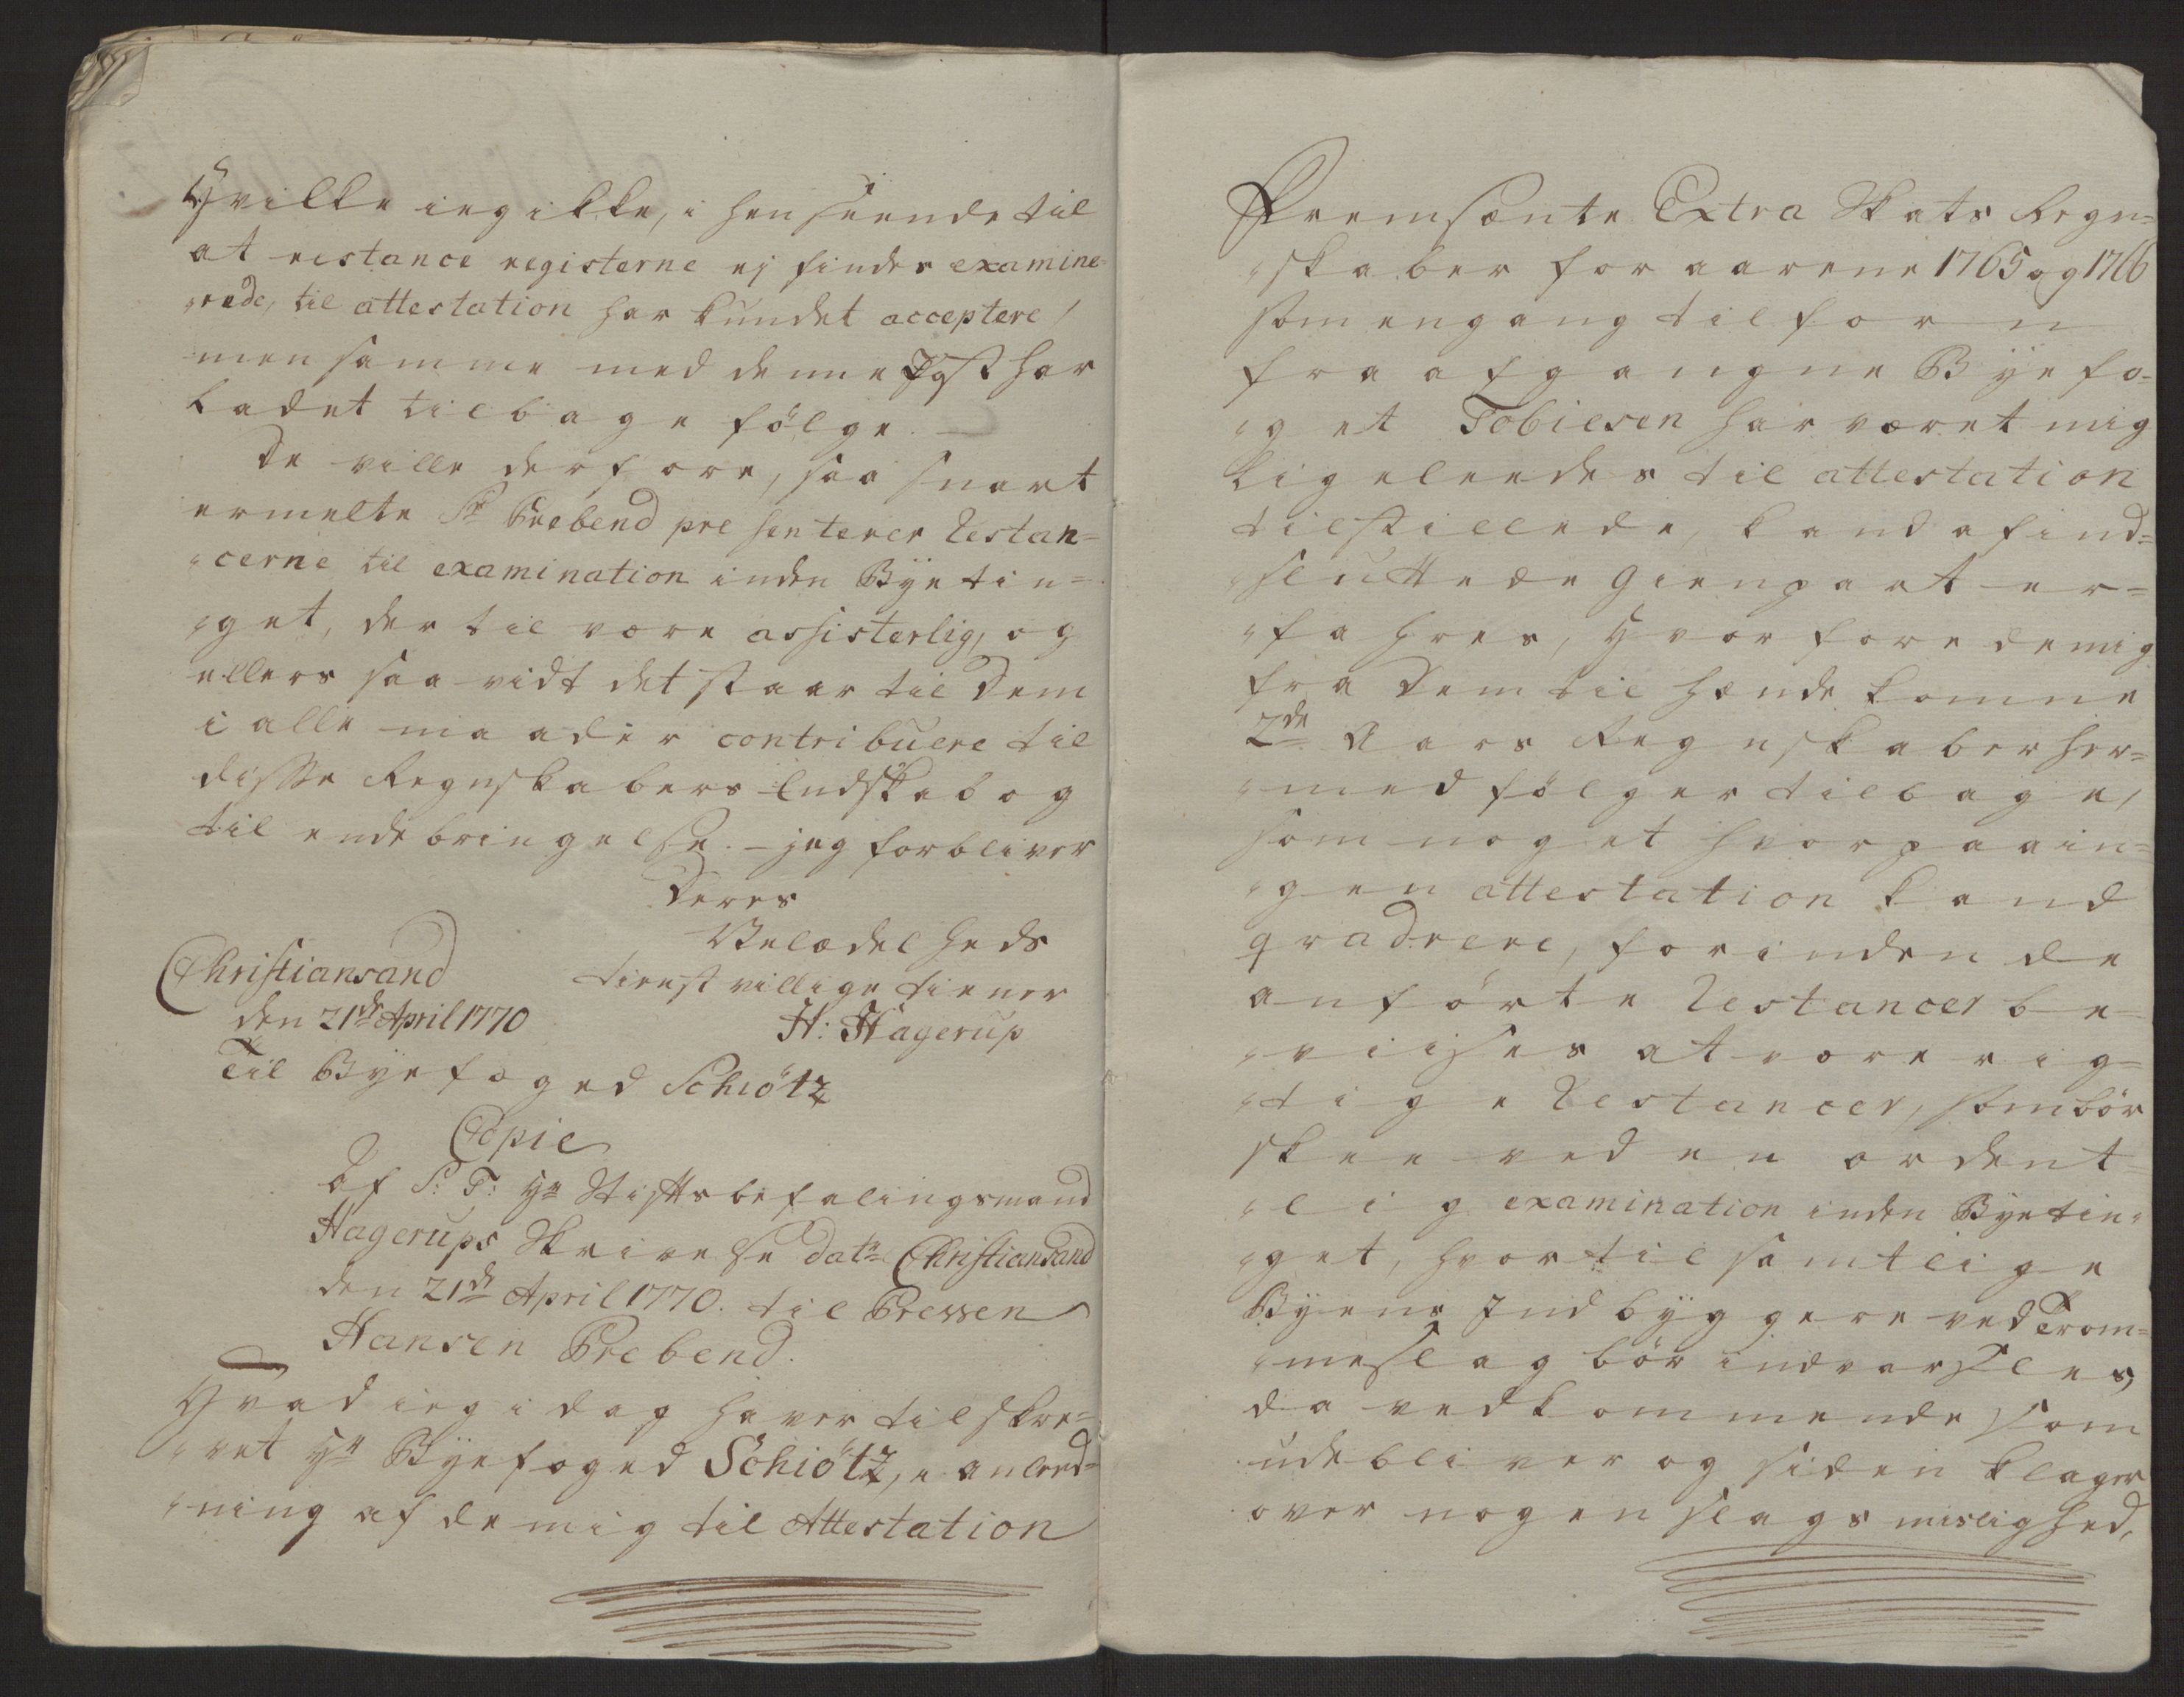 Hvilke ieg ikke, i hen seende til
at restance registerne ej findes examine=
rede, til attestation har kundet acceptere,
men samme med denne Post har
ladet tilbage følge. —
De ville derfore, saa snart
ermelte Sr Prebend pre senterer Restan=
cerne til examination inden Byetin=
get, der til være assisterlig, og
ellers saa vidt det staar til Dem
i alle maader contribuere til
disse Regnskabers Endskab og
til endebringelse. — jeg forbliver
Deres
Velædelheds
Christiansand
tienstvillige tiener
den 21de April 1770
H: Hagerup
Til Byefoged Schiötz
Copie
Af S: T: Hr Stiftsbefalingsmand
Hagerups Skrivelse dat: Christiansand
den 21de April 1770. til Pressen
Hansen Prebend.
Hvad ieg i dag haver tilskre=
vet Hr Byefoged Schiötz, i anled=
ning af de mig til Attestation
Fremsente Extra Skats Regn=
skaber for aarene 1765 og 1766
som engang tilforn
fra afgangne Byefo=
get Tobiesen har været mig
ligeleedes til attestation
tilstillede, kand af ind=
sluttede Gienpart er=
fahres, hvorfore de mig
fra Dem til hænde komne
2de Aars Regnskaber her=
med følger tilbage,
som noget hvorpaa in=
gen attestation kand
qvadrere, forinden de
anförte Restancer be=
viises at være rig=
tige Restancer, som bör
skee ved en ordent=
lig examination inden Byetin=
get, hvortil samtlige
Byens Indbyggere ved Trom=
meslag bör indvarsles,
da vedkommende som
udebliver og siden klager
over nogen slags mislighed,